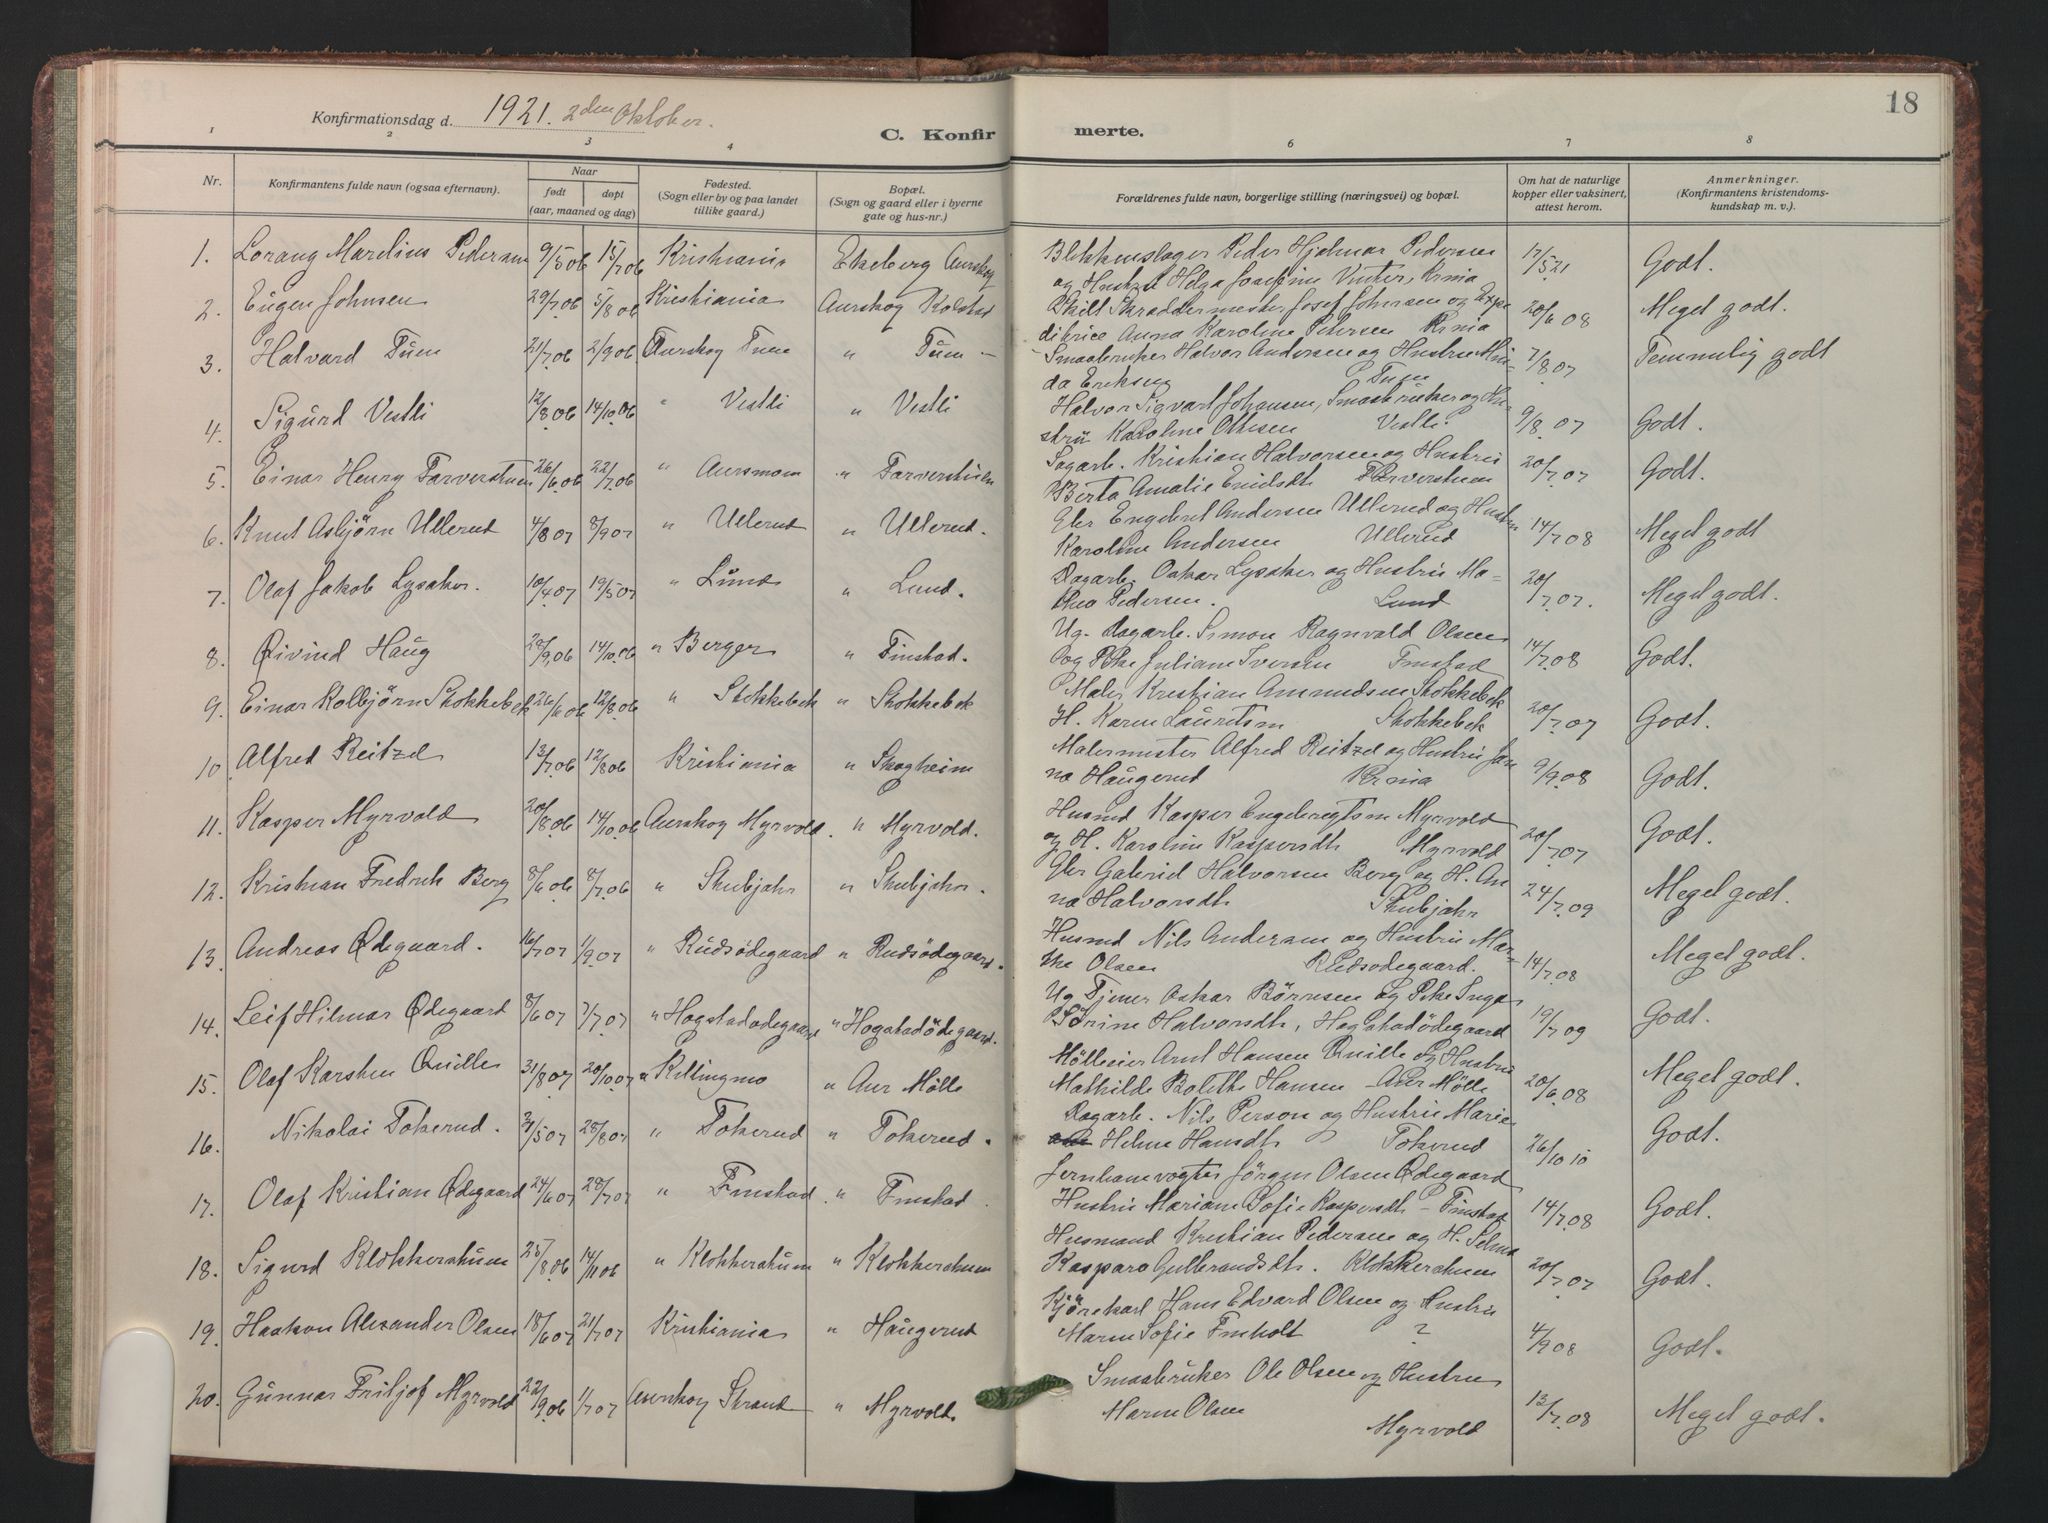 18
Konfirmationsdag d. 1921. 2den Oktober.
C. Konfirmerte.
1 2 3 4 6 7 8
Nr. Konfirmantens fulde navn (ogsaa efternavn). Naar født døpt (aar, maaned og dag) Fødested. (Sogn eller by og paa landet tillike gaard.) Bopæl. (Sogn og gaard eller i byerne gate og hus-nr.) Forældrenes fulde navn, borgerlige stilling (næringsvei) og bopæl. Om hat de naturlige kopper eller vaksinert, attest herom. Anmerkninger. (Konfirmantens kristendomskundskap m. v.).
1. Lorang Marelius Pedersen 9/5 06 15/7 06 Kristiania Ekeberg Aurskog Blikkenslager Peder Hjalmar Pedersen 17/5 21 Godt.
og Hustru Helga Josefine Vinter, Krnia
2. Eugen Johnsen 29/7 06 5/8 06 Kristiania Aurskog Kolstad Skilt Skræddermester Josef Johnsen og Expe 20/6 08 Meget godt.
ditrice Anna Karoline Petersen Krnia
3. Halvard Tum 21/7 06 2/9 06 Aurskog Tum " Tum - Smaabruker Halvor Andersen og Hustru 7/8 07 Temmelig godt
da Eriksen Tum
4. Sigurd Vestli 12/8 06 14/10 06 " Vestli " Vestli Halvor Sigvart Johansen, Smaabruker og Hu- 9/8 07 Godt.
stru Karoline Olsen Vestli
5. Einar Henry Tarverstuen 26/6 06 22/7 06 " Aursmoen " Tarverstuen Sagarb. Kristian Halvorsen og Hustru 20/7 07 Godt.
Berta Amalie Tarverstuen
6. Knut Asbjörn Ullerud 4/8 07 8/9 07 " Ullerud " Ullerud. Gbr Engebret Andersen Ullerud og Hustru 14/7 08 Meget godt
Karoline Andersen Ullerud
7. Olaf Jakob Lysaker. 10/4 07 19/5 07 " Lund " Lund. Dagarb. Oskar Lysaker og Hustru Ma- 20/7 07. Meget godt.
Pedersen. Lund
8. Øivind Haug 28/9 06 14/10 06 " Berger " Finstad. Ug. Dagarb. Simon Ragnvald Olsen 14/7 08 Godt.
og Pike Juliane Iversen Finstad
9. Einar Kolbjörn Stokkebek 26/6 06 12/8 06 " Stokkebek " Stokkebek Maler Kristian Amundsen Stokkebek 20/7 07 Godt.
H. Karen Lauritsen Stokkebek
10 Alfred Reitzel 13/7 06 12/8 06 Kristiania " Skogheim Malermester Alfred Reitzel og Hustru Jan 9/9 08 Godt.
na Haugerud Krnia
11. Kasper Myrvold 20/8 06 14/10 06 Aurskog Myrvold " Myrvold. Husmd Kasper Engebregtsen Myrvold 20/7 07 Godt.
og H. Karoline Kaspersdt. Myrvold
12. Kristian Fredrik Berg 8/6 06 8/7 06 " Skubjahr " Skubjahr. Gbr Gabriel Halvorsen Berg og H. An 24/7 09 Meget godt.
na Halvorsdt. Skubjahr
13. Andreas Ødegaard. 16/7 07 1/9 07 " Rudsödegaard " Rudsödegaard. Husmd Nils Andersen og Hustru Mar- 14/7 08 Meget godt.
the Olsen Rudsödegaard.
14. Leif Hilmar Ødegaard 8/6 07 7/7 07 " Hogstadodegaard " Hogstadödegaard. Ug Tjener Oskar Börresen og Pike Inga 19/7 09 Godt.
Sörine Halvorsdt., Hogstadödegaard
15. Olaf Karsten Quille 31/8 07 20/10 07 " Killingmo " Aur Mölle Mölleeier Arnt Hansen Quille og Hustru 20/6 08 Meget godt.
Mathilde Bolette Hansen - Aur Mölle
16. Nikolai Tokerud. 31/5 07 28/8 07 " Tokerud " Tokerud. Dagarb. Nils Person og Hustru Marie 26/10 10 Godt.
Helene Hansdt. Tokerud
17. Olaf Kristian Ødegaard 24/6 07 28/7 07 " Finstad. " Finstad Jernbanevogter Jörgen Olsen Ødegaard 14/7 08 Godt.
Hustru Mariane Sofie Kaspersdt. - Finstad
18. Sigurd Klokkerstuen 25/8 06 14/11 06 " Klokkerstuen " Klokkerstuen Husmand Kristian Pedersen og H. Selma 20/7 07 Godt.
Kaspara Gulbrandsdt. Klokkerstuen
19. Haakon Alexander Olsen 18/6 07 21/7 07 Kristiania " Haugerud Kjörekarl Hans Edvard Olsen og Hustru 4/9 08 Godt.
Maren Sofie Finholt ?
20. Gunnar Fritjof Myrvold 22/9 06 1/7 07 Aurskog Strand " Myrvold. Smaabruker Ole Olsen og Hustru 13/7 08 Meget godt.
Maren Olsen Myrvold